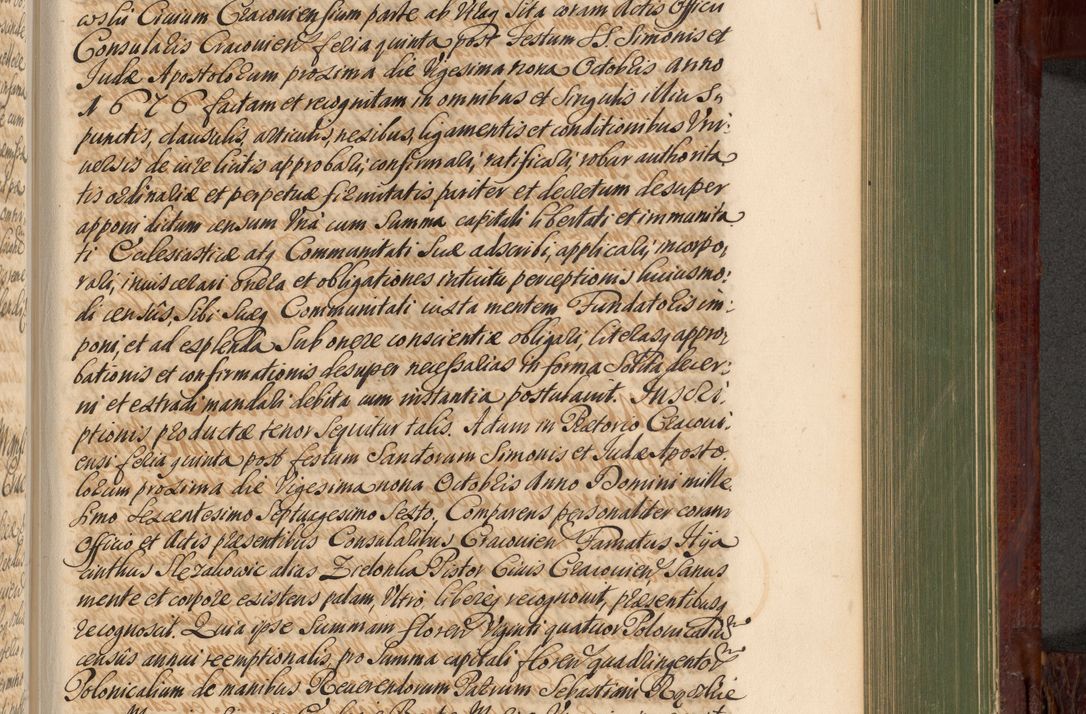 Civium Cracoviensium parte ab Vtaq Sita coram Actis Officii
Consularis Cracovien feria quinta post Festum SS. Simonis et
Judæ Apostolorum proxima die Vigesima nona Octobris anno
1676 factam et recognitam in omnibus et Singulis illius
punctis, clausulis, articulis, nexibus, ligamentis et conditionibus Vni:
versis de iure licitis approbari, confirmari, ratificari, robur authorita
tis ordinariæ et perpetuæ firmitatis pariter et decretum desuper
apponi dictum censum Vnà cum Summa capitali libertati et immunita
ti Ecclesiasticæ atq Communitati Suæ adscribi, applicari, incorpo,
rari, inviscerari onera et obligationes intuitu perceptionis huiusmo:
di censûs, Sibi Suæq Communitati iuxta mentem Fundatoris im:
poni, et ad explenda Sub onere conscientiæ obligari, literasq appro,
bationis et confirmationis desuper necessarias in forma Solita decer,
ni et extradi mandari debita cum instantia postulavit. Inscri,
ptionis productæ tenor Sequitur talis. Actum in Prætorio Cracovi,
ensi feria quinta post festum Sanctorum Simonis et Judæ Aposto,
lorum proxima die Vigesima nona Octobris Anno Domini mille
simo Sexcentesimo Septuagesimo Sexto. Comparens personaliter coram
Officio et Actis præsentibus Consularibus Cracovien Famatus Hya
cinthus alias Pistor Civis Cracovien Sanus
mente et corpore existens palam, Vltro, libereq recognovit, præsentibusq
recognoscit. Quia ipse Summam floren Viginti quatuor Polonicaliu
censûs annui reemptionalis, pro Summa capitali floren quadringento
Polonicalium de manibus Reverendorum Patrum Sebastiani